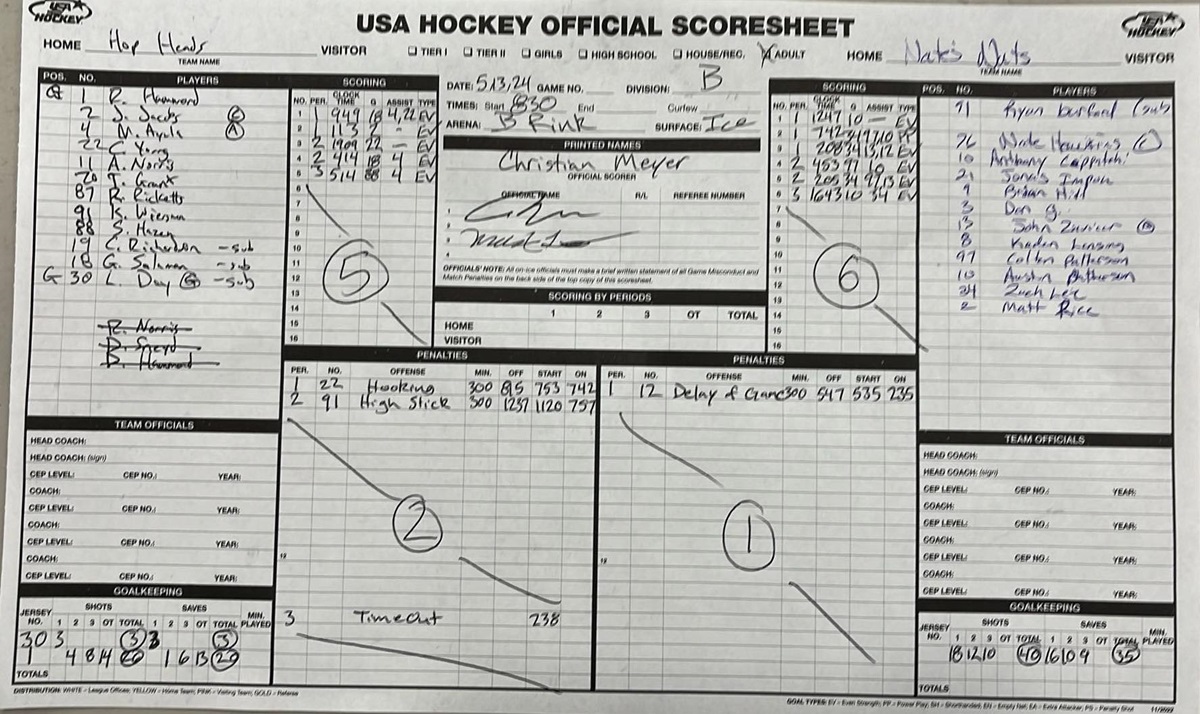 USA HOCKEY
USA HOCKEY OFFICIAL SCORESHEET
HOCKEY
HOME Hop Heads VISITOR
TEAM NAME
☐ TIER I ☐ TIER II ☐ GIRLS ☐ HIGH SCHOOL ☐ HOUSE/REC. ☒ ADULT
HOME Nate's Nuts VISITOR
TEAM NAME
POS. NO. PLAYERS
G 1 R. Hammond
2 J. Jacobs C
4 M. Ayala A
22 C. Young
11 A. Norris
20 T. Grant
87 R. Ricketts
91 K. Wiesman
88 S. Hazen
19 C. Richardson - sub
18 G. Salaman - sub
G 30 L. Day G - sub
R. Norris
D. Hammond
SCORING
NO. PER. CLOCK TIME G ASSIST TYPE
1 1 949 18 4,22 EV
2 1 113 2 - EV
3 2 1909 22 - EV
4 2 414 18 4 EV
5 3 514 88 4 EV
6
7
8
9
10
11
12
13
14
15
16
5
DATE: 5,13,24 GAME NO. DIVISION: B
TIMES: Start 830 End Curfew
ARENA: B Rink SURFACE: Ice
PRINTED NAMES
Christian Meyer
OFFICIAL SCORER
OFFICIAL NAME R/L REFEREE NUMBER
1
2
3
4
OFFICIALS' NOTE: All on-ice officials must make a brief written statement of all Game Misconduct and
Match Penalties on the back side of the top copy of this scoresheet.
SCORING BY PERIODS
1 2 3 OT TOTAL
HOME
VISITOR
SCORING
NO. PER. CLOCK TIME G ASSIST TYPE
1 1 1247 10 — EV
2 1 742 34 97,10 PP
3 1 208 34 13,12 EV
4 2 453 97 10 EV
5 2 205 34 97,13 EV
6 3 1643 10 34 EV
7
8
9
10
11
12
13
14
15
16
6
POS. NO. PLAYERS
91 (sub)
76 Nate Hawkins C
10 Anthony
21 Jarvis
9 Brian Hill
3 Don G.
13 John
8 Kaden Lensing
97 Colten Patterson
10 Austin Patterson
34 Zach Lee
2 Matt Rice
PENALTIES
PER. NO. OFFENSE MIN. OFF START ON
1 22 Hooking 300 815 753 742
2 91 High Stick 300 1237 1120 757
2
12
3 TimeOut 238
PENALTIES
PER. NO. OFFENSE MIN. OFF START ON
1 12 Delay of Game 300 547 535 235
1
12
TEAM OFFICIALS
HEAD COACH:
HEAD COACH: (sign)
CEP LEVEL: CEP NO.: YEAR:
COACH:
CEP LEVEL: CEP NO.: YEAR:
COACH:
CEP LEVEL: CEP NO.: YEAR:
COACH:
CEP LEVEL: CEP NO.: YEAR:
GOALKEEPING
SHOTS SAVES
JERSEY NO. 1 2 3 OT TOTAL 1 2 3 OT TOTAL MIN. PLAYED
30 3 3 3 3
1 4 8 14 26 1 6 13 20
TOTALS
TEAM OFFICIALS
HEAD COACH:
HEAD COACH: (sign)
CEP LEVEL: CEP NO.: YEAR:
COACH:
CEP LEVEL: CEP NO.: YEAR:
COACH:
CEP LEVEL: CEP NO.: YEAR:
COACH:
CEP LEVEL: CEP NO.: YEAR:
GOALKEEPING
SHOTS SAVES
JERSEY NO. 1 2 3 OT TOTAL 1 2 3 OT TOTAL MIN. PLAYED
18 12 10 40 16 10 9 35
TOTALS
DISTRIBUTION: WHITE - League Offices; YELLOW - Home Team; PINK - Visiting Team; GOLD - Referee
GOAL TYPES: EV - Even Strength, PP - Power Play, SH - Shorthanded, EN - Empty Net, EA - Extra Attacker, PS - Penalty Shot